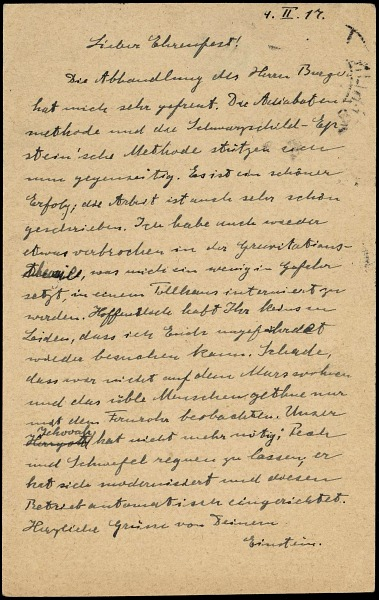 4. II. 17.
Lieber Ehrenfest!
Die Abhandlung des Herrn Burgers
hat mich sehr gefreut. Die Adiabaten-
methode und die Schwarzschild-Ep-
stein'sche Methode stützen sich
nun gegenseitig. Es ist ein schöner
Erfolg; die Arbeit ist auch sehr schön
geschrieben. Ich habe auch wieder
etwas verbrochen in der Gravitations-
theorie, was mich ein wenig in Gefahr
setzt, in einem Tollhaus interniert zu
werden. Hoffentlich habt Ihr keins in
Leiden, dass ich Euch ungefährdet
wieder besuchen kann. Schade,
dass wir nicht auf dem Mars wohnen
und das üble Menschengetue nur
mit dem Fernrohr beobachten. Unser
Jehovah hat nicht mehr nötig, Pech
und Schwefel regnen zu lassen; er
hat sich modernisiert und diesen
Betrieb automatisch eingerichtet.
Herzliche Grüsse von Deinem
Einstein.